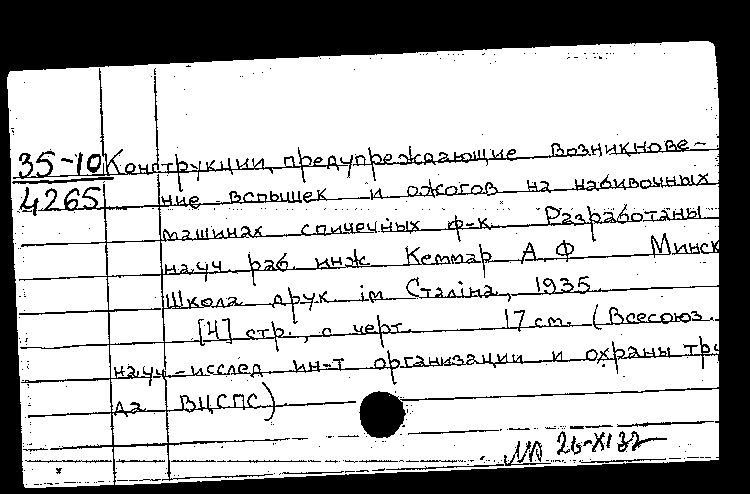 35-10 Конструкции, предупреждающие возникнове-
4265 ние вспышек и ожогов на набивочных
машинах спичечных ф-к. Разработаны
науч. раб. инж Кеммар А. Ф Минск
Школа друк ім. Сталіна, 1935
[4] стр., с черт. 17 см. (Всесоюз.
науч-исслед. ин-т организации и охраны тру
да ВЦСПС)